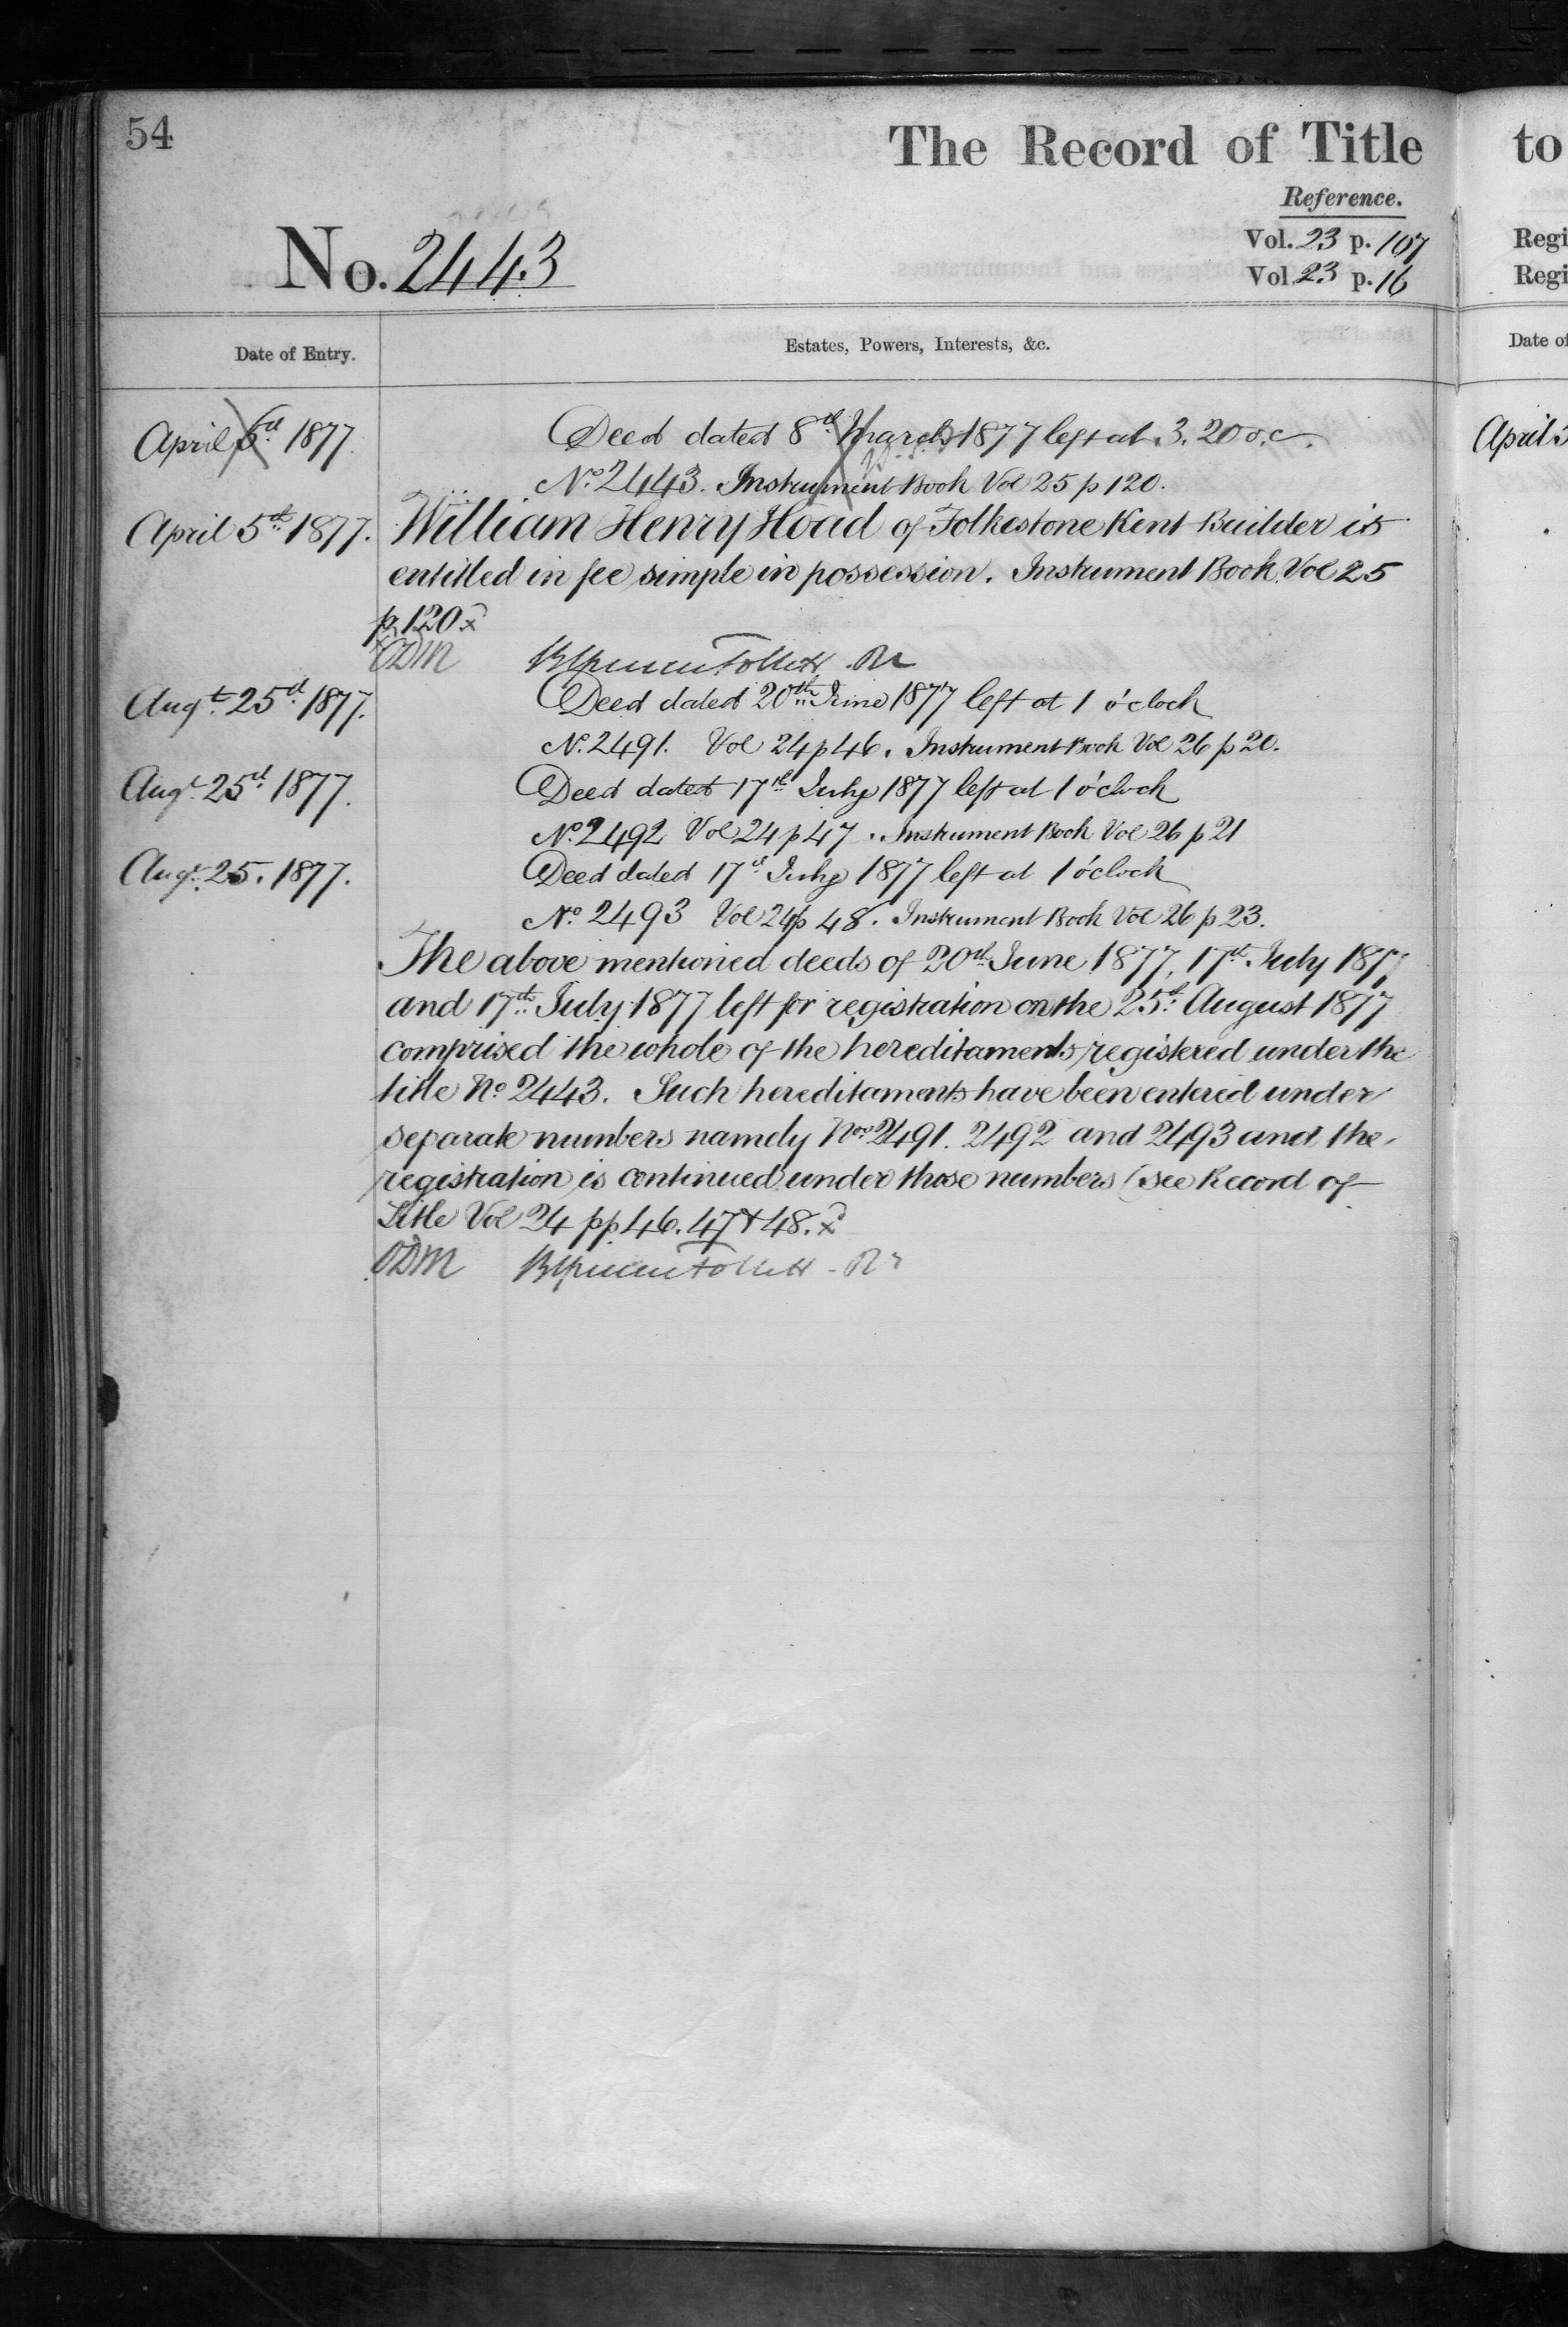 54
The Record of Title
to
Reference.
No. 2443
Vol. 23 p. 107
Regi
Vol. 23 p. 16
Regi
Date of Entry.
Estates, Powers, Interests, &c.
Date of
April 5th 1877.
Deed dated 8th March 1877 left at 3.20 o.c.
April 5
No. 2443. Instrument Book Vol 25 p 120.
April 5th 1877.
William Henry Hoad of Folkestone Kent Builder is
entitled in fee simple in possession. Instrument Book Vol 25
p. 120
ODM
Augt. 25th 1877.
Deed dated 20th June 1877 left at 1 o'clock
No. 2491. Vol 24 p 46. Instrument Book Vol 26 p 20.
Augt. 25th 1877.
Deed dated 17th July 1877 left at 1 o'clock
No. 2492 Vol 24 p 47. Instrument Book Vol 26 p 21
Augt. 25. 1877.
Deed dated 17th July 1877 left at 1 o'clock
No. 2493 Vol 24 p 48. Instrument Book Vol 26 p 23.
The above mentioned deeds of 20th June 1877, 17th July 1877
and 17th July 1877 left for registration on the 25th August 1877
comprised the whole of the hereditaments registered under the
title No. 2443. Such hereditaments have been entered under
separate numbers namely Nos 2491. 2492 and 2493 and the
registration is continued under those numbers (see Record of
Title Vol 24 pp 46. 47 & 48.
ODM